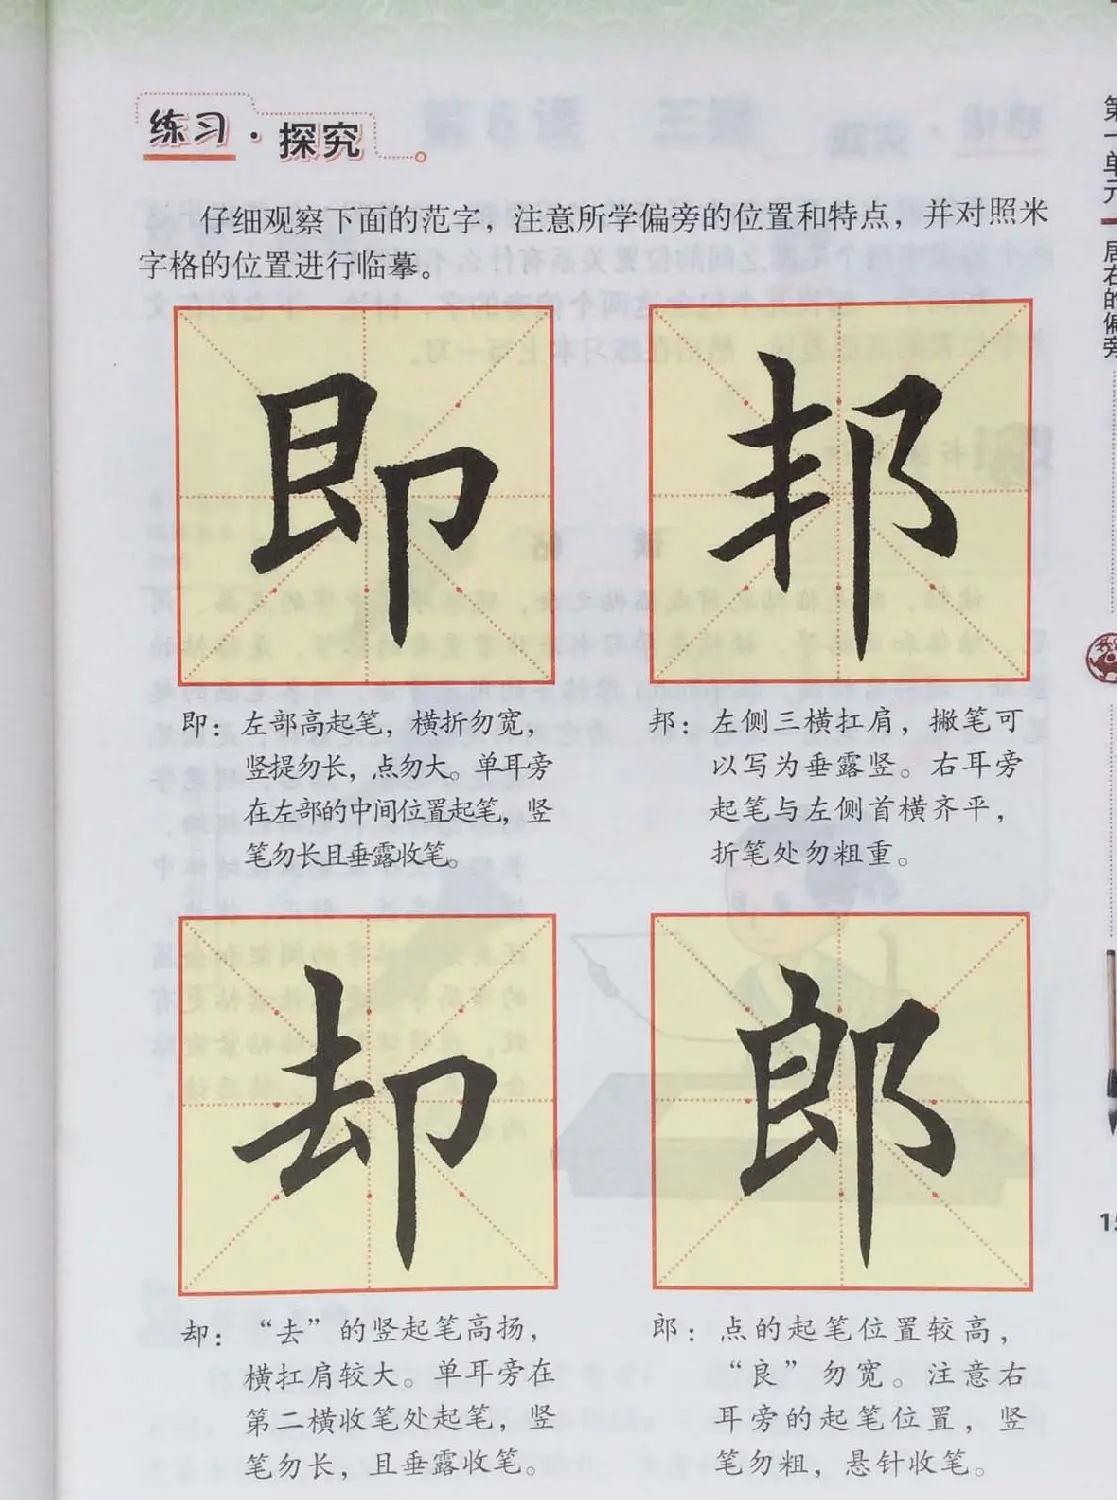 练习·探究
仔细观察下面的范字，注意所学偏旁的位置和特点，并对照米
字格的位置进行临摹。
即
邦
即：左部高起笔，横折勿宽，
竖提勿长，点勿大。单耳旁
在左部的中间位置起笔，竖
笔勿长且垂露收笔。
邦：左侧三横扛肩，撇笔可
以写为垂露竖。右耳旁
起笔与左侧首横齐平，
折笔处勿粗重。
却
郎
却：“去”的竖起笔高扬，
横扛肩较大。单耳旁在
第二横收笔处起笔，竖
笔勿长，且垂露收笔。
郎：点的起笔位置较高，
“良”勿宽。注意右
耳旁的起笔位置，竖
笔勿粗，悬针收笔。
第一单元
居右的偏旁